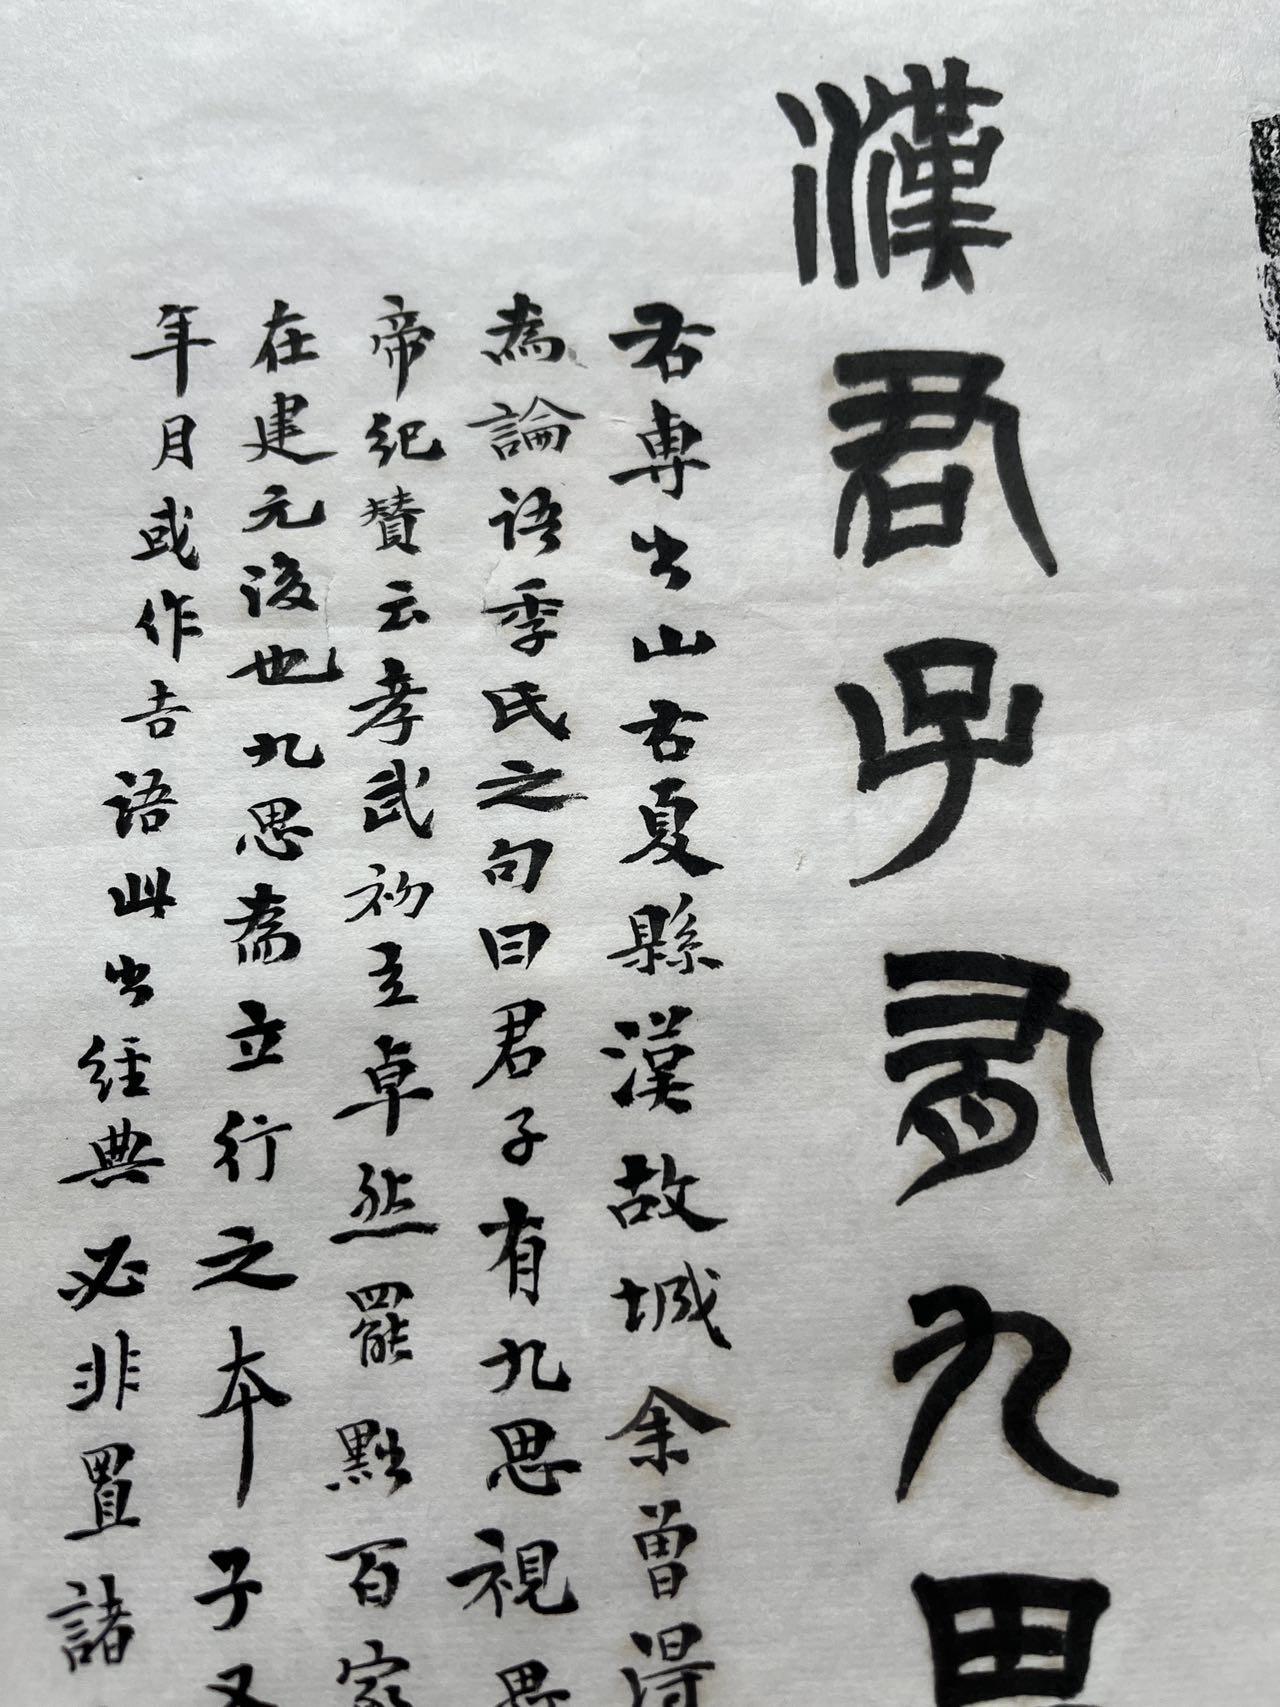 漢君子有九思
右專出山右夏縣漢故城余曾得
為論語季氏之句曰君子有九思視思
帝紀贊云孝武初立卓然罷黜百家
在建元後也九思為立行之本子又
年月或作吉語此出經典必非置諸